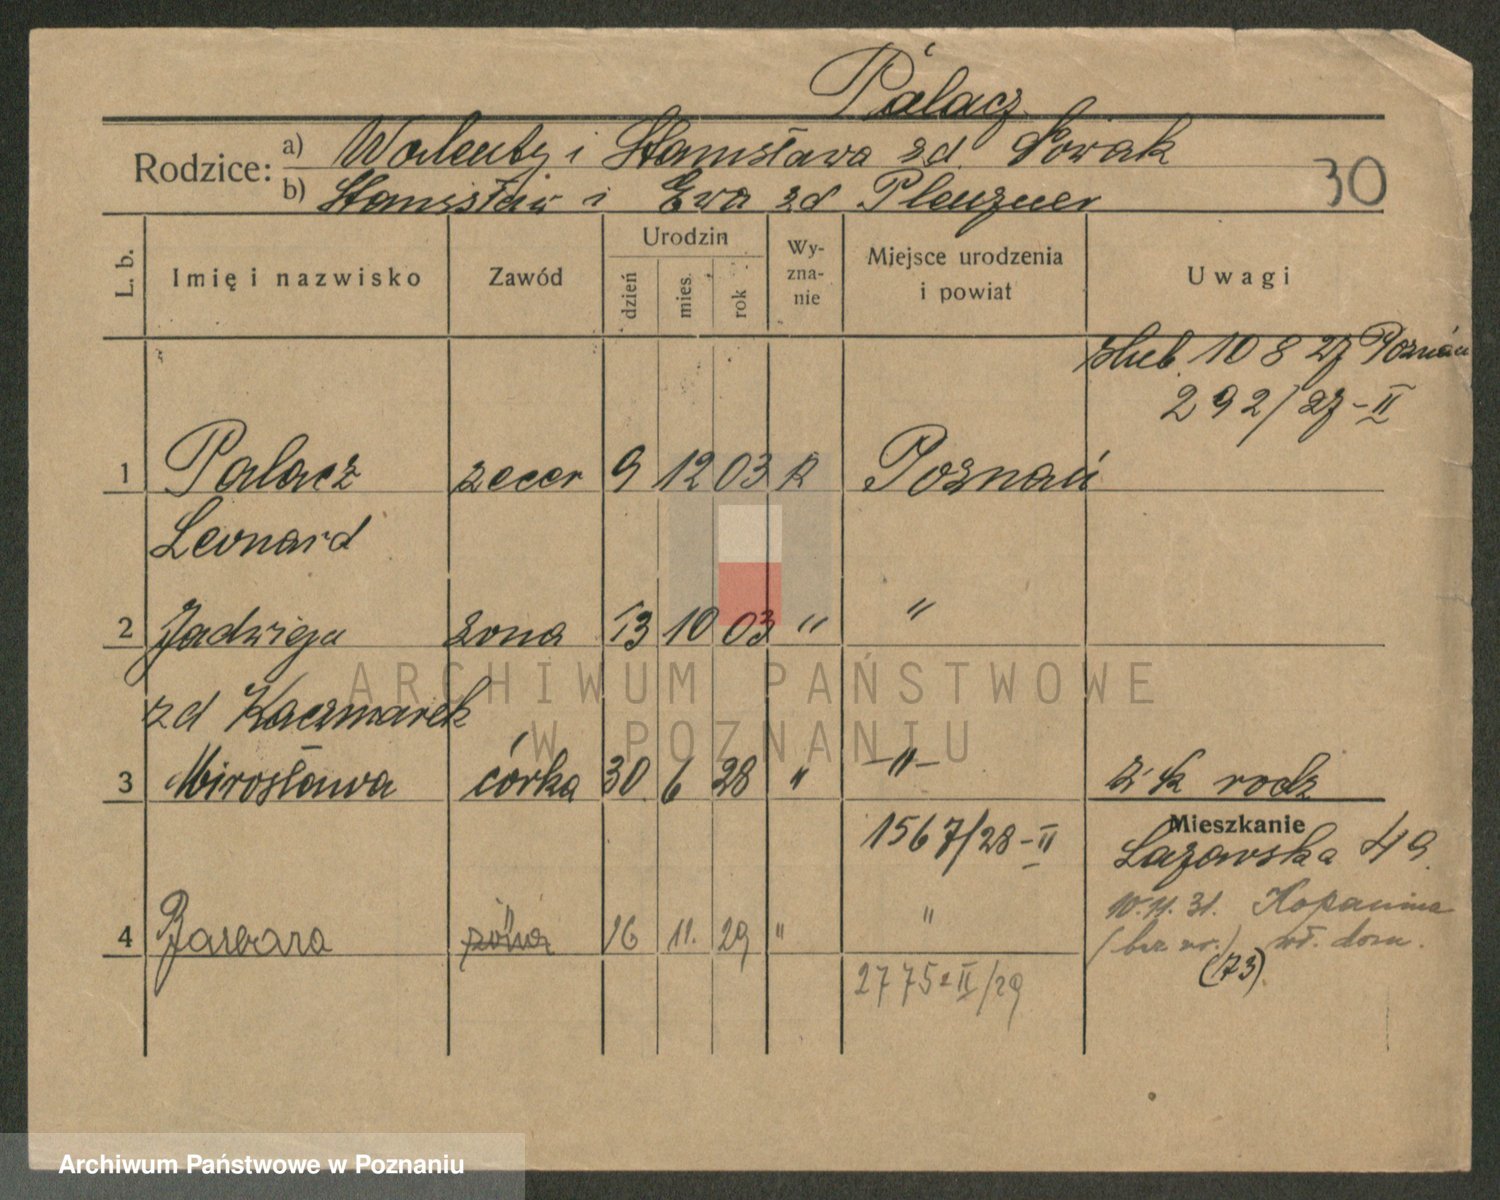 Palacz
Rodzice: a) Walenty i Stanisława zd. Nowak
b) Stanisław i Ewa zd Plenzner
30
L. b. Imię i nazwisko Zawód Urodzin dzień mies. rok Wy-zna-nie Miejsce urodzenia i powiat Uwagi
slub. 10 8 27 Poznań
292/27-II
1 Palacz zecer 9 12 03 R Poznań
Leonard
2 Jadwiga żona 13 10 03 " "
zd Kaczmarek
3 Mirosława córka 30 6 28 " -"- rodz
1567/28-II Mieszkanie
Łazarska 49.
10.11.31. Kopanina
4 Barbara 16 11. 29 " "
(bez nr.) wł. dom.
(73).
2775-II/29
ARCHIWUM PAŃSTWOWE
W POZNANIU
Archiwum Państwowe w Poznaniu